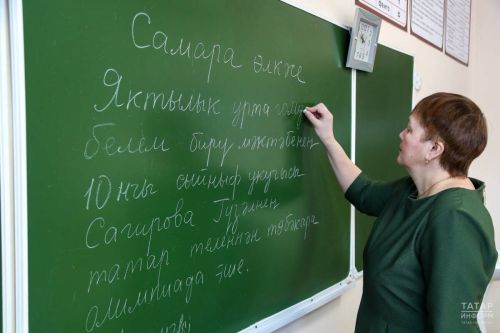 Самара өлкәсе
Яктылык урта гомуми
белем бирү мәктәбенең
10нчы сыйныф укучысы
Сагирова Гүзәлнең
татар теленнән төбәкара
олимпиада эше.
ТАТАР
ИНФОРМ